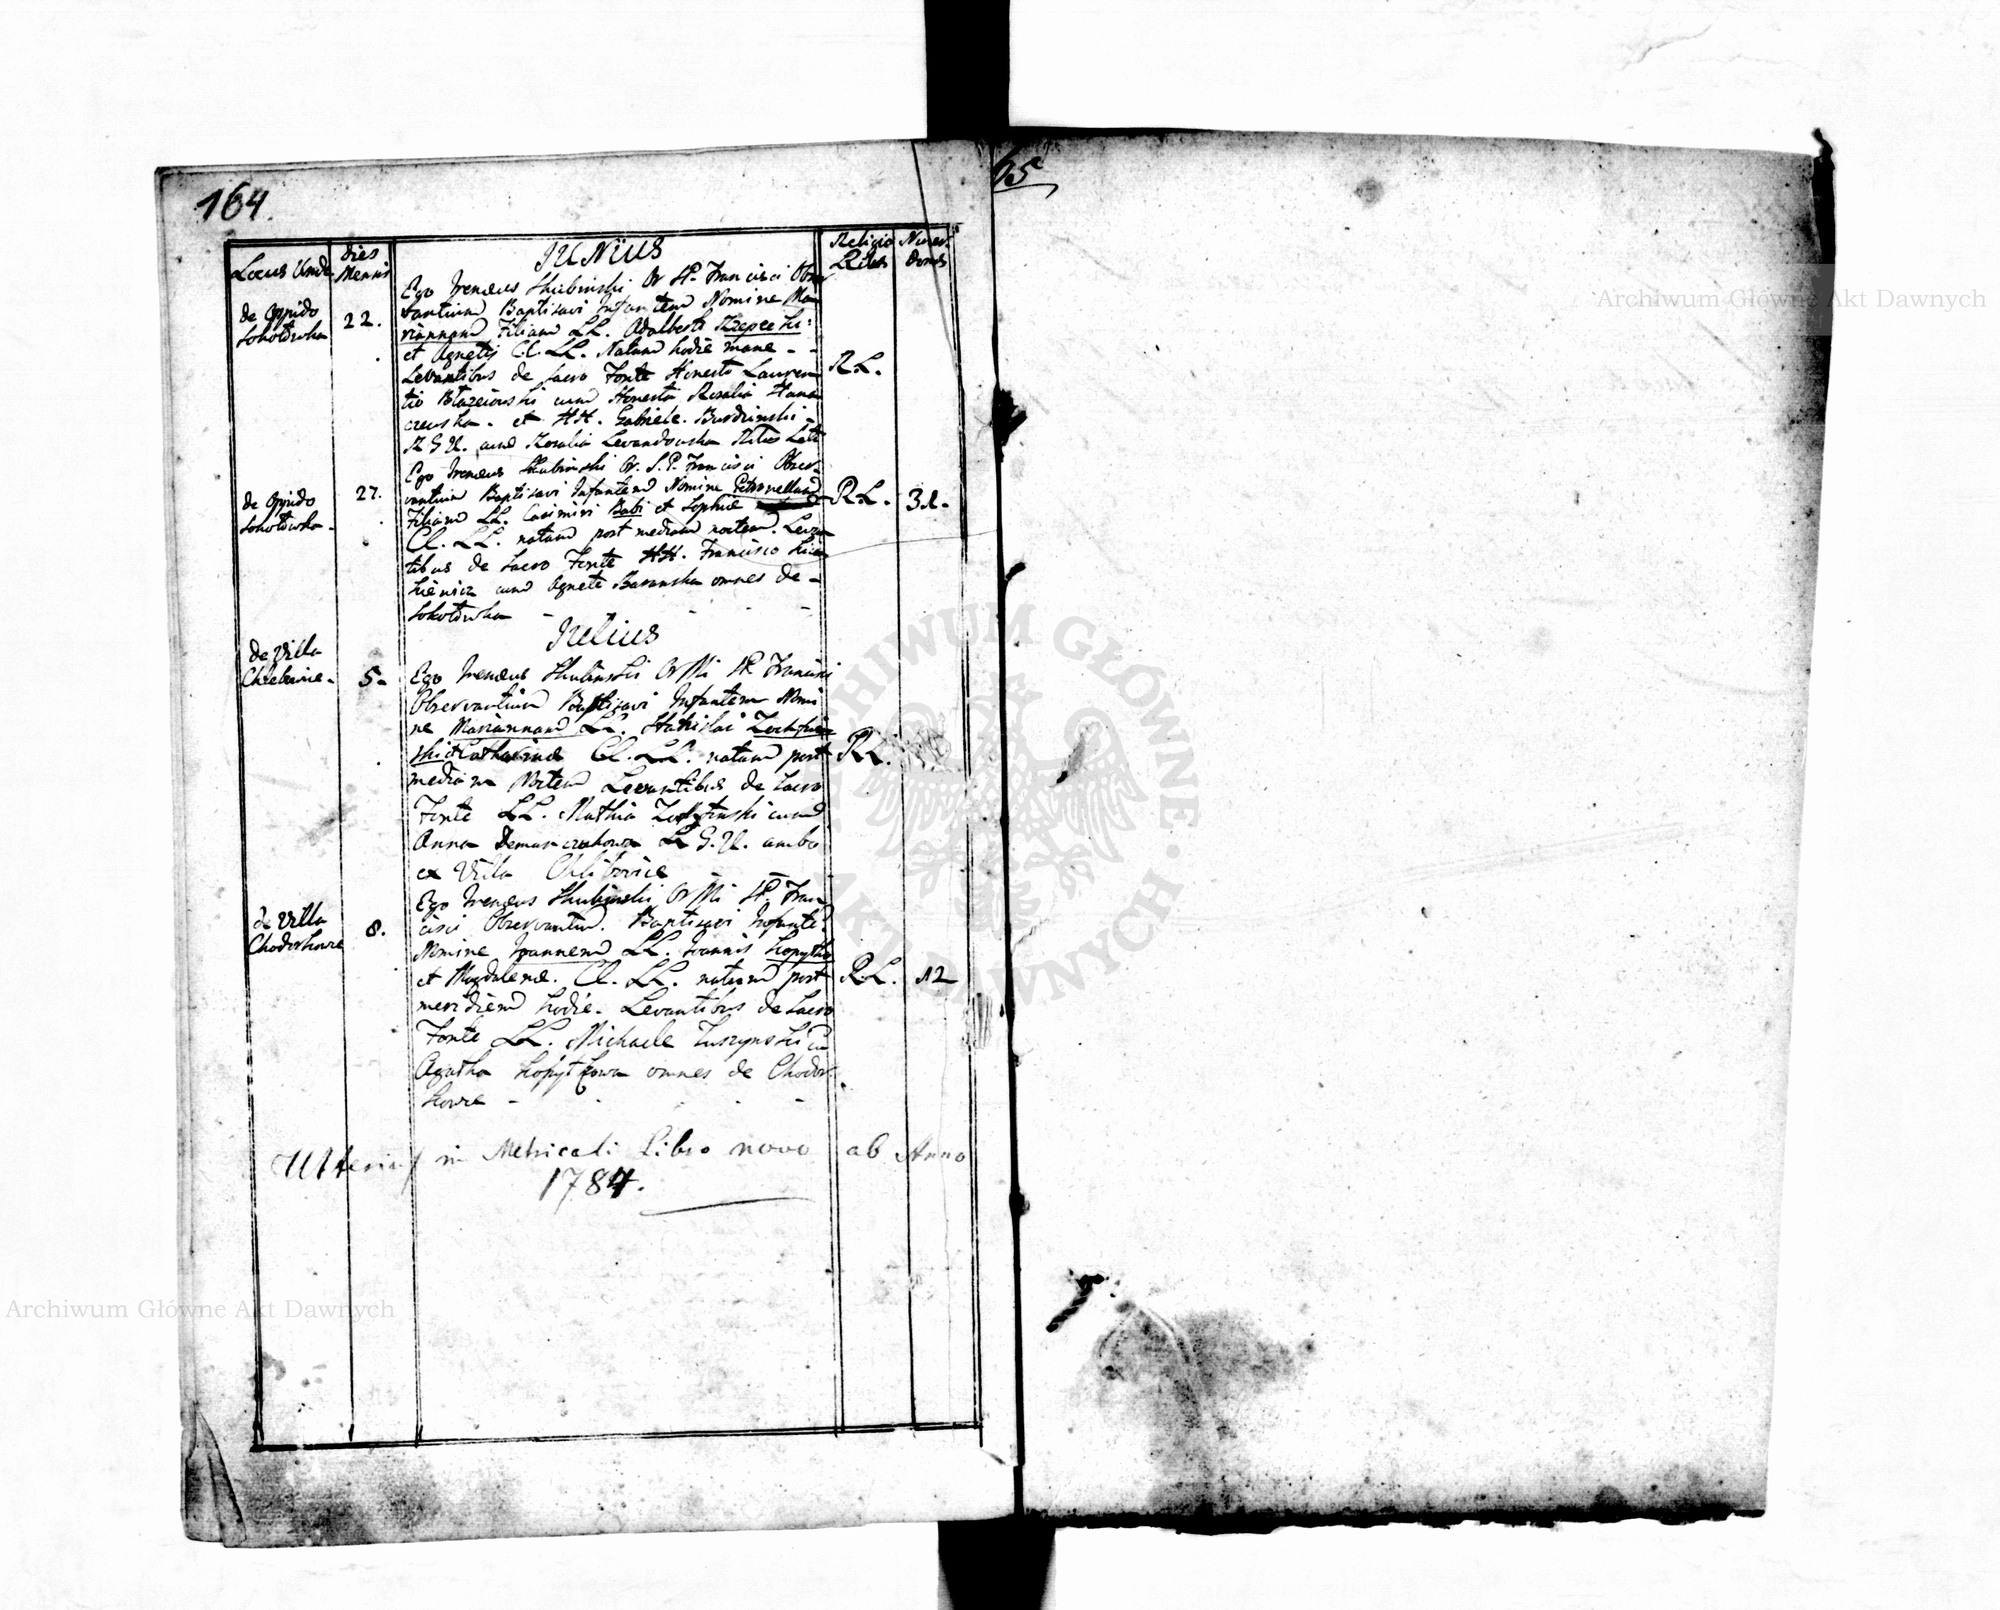 164.
65
Locus Unde
dies Mensis
JUNIUS
Religio Ritus
Numer. Domus
de Oppido Sokołówka
22.
Ego Irenæus Skubinski Or SP. Francisci Obser
vantium Baptisavi Infantem Nomine Ma
riannam Filiam LL. Adalberti
et Agnetis C.C. LL. Natam hodie mane - -
Levantibus de Sacro Fonte Honesto Lauren
tio Błazeiowski cum Honesta Rosalia
czewska. et HH. Gabriele.
R G U. cum Rosalia Levandowska Ritus Lati
R.L.
de Oppido Sokołówka.
27.
Ego Irenæus Skubinski Or. S.P. Francisci Obser-
vantium Baptisavi Infantem Nomine Petronellam
Filiam LL. Casimiri Babi et Sophiæ
Cl. LL. natam post mediam noctem. Levan
tibus de Sacro Fonte HH. Francisco
kiewicz cum Agnete Baranska omnes de -
Sokołówka - - - -
R.L.
31.
Julius
de Villa Chlebowice.
5.
Ego Irenæus Skubinski Or Mi SP. Francisci
Observantium Baptisavi Infantem Nomi
ne Mariannam LL. Stanislai
ski et Catharinæ Cl. LL. natam post
mediam Noctem Levantibus de Sacro
Fonte LL. Mathia cum
Anna L G.U. ambo
ex Villa Chlibovice
R L.
de Villa Chodorkowce
8.
Ego Irenæus Skubinski Or Mi SP. Fran
cisci Observantium. Baptisavi Infante.
Nomine Joannem LL. Joannis Kopytko
et Magdalenæ. Cl. LL. natum post
meridiem hodie. Levantibus de Sacro
Fonte LL. Michaele Tuszynski cu
Agatha Kopytkowa omnes de Chodor
kowce - - - - -
R.L.
12
Ulterius in Metricali Libro novo ab Anno
1784.
Archiwum Główne Akt Dawnych
Archiwum Główne Akt Dawnych
ARCHIWUM GŁÓWNE AKT DAWNYCH